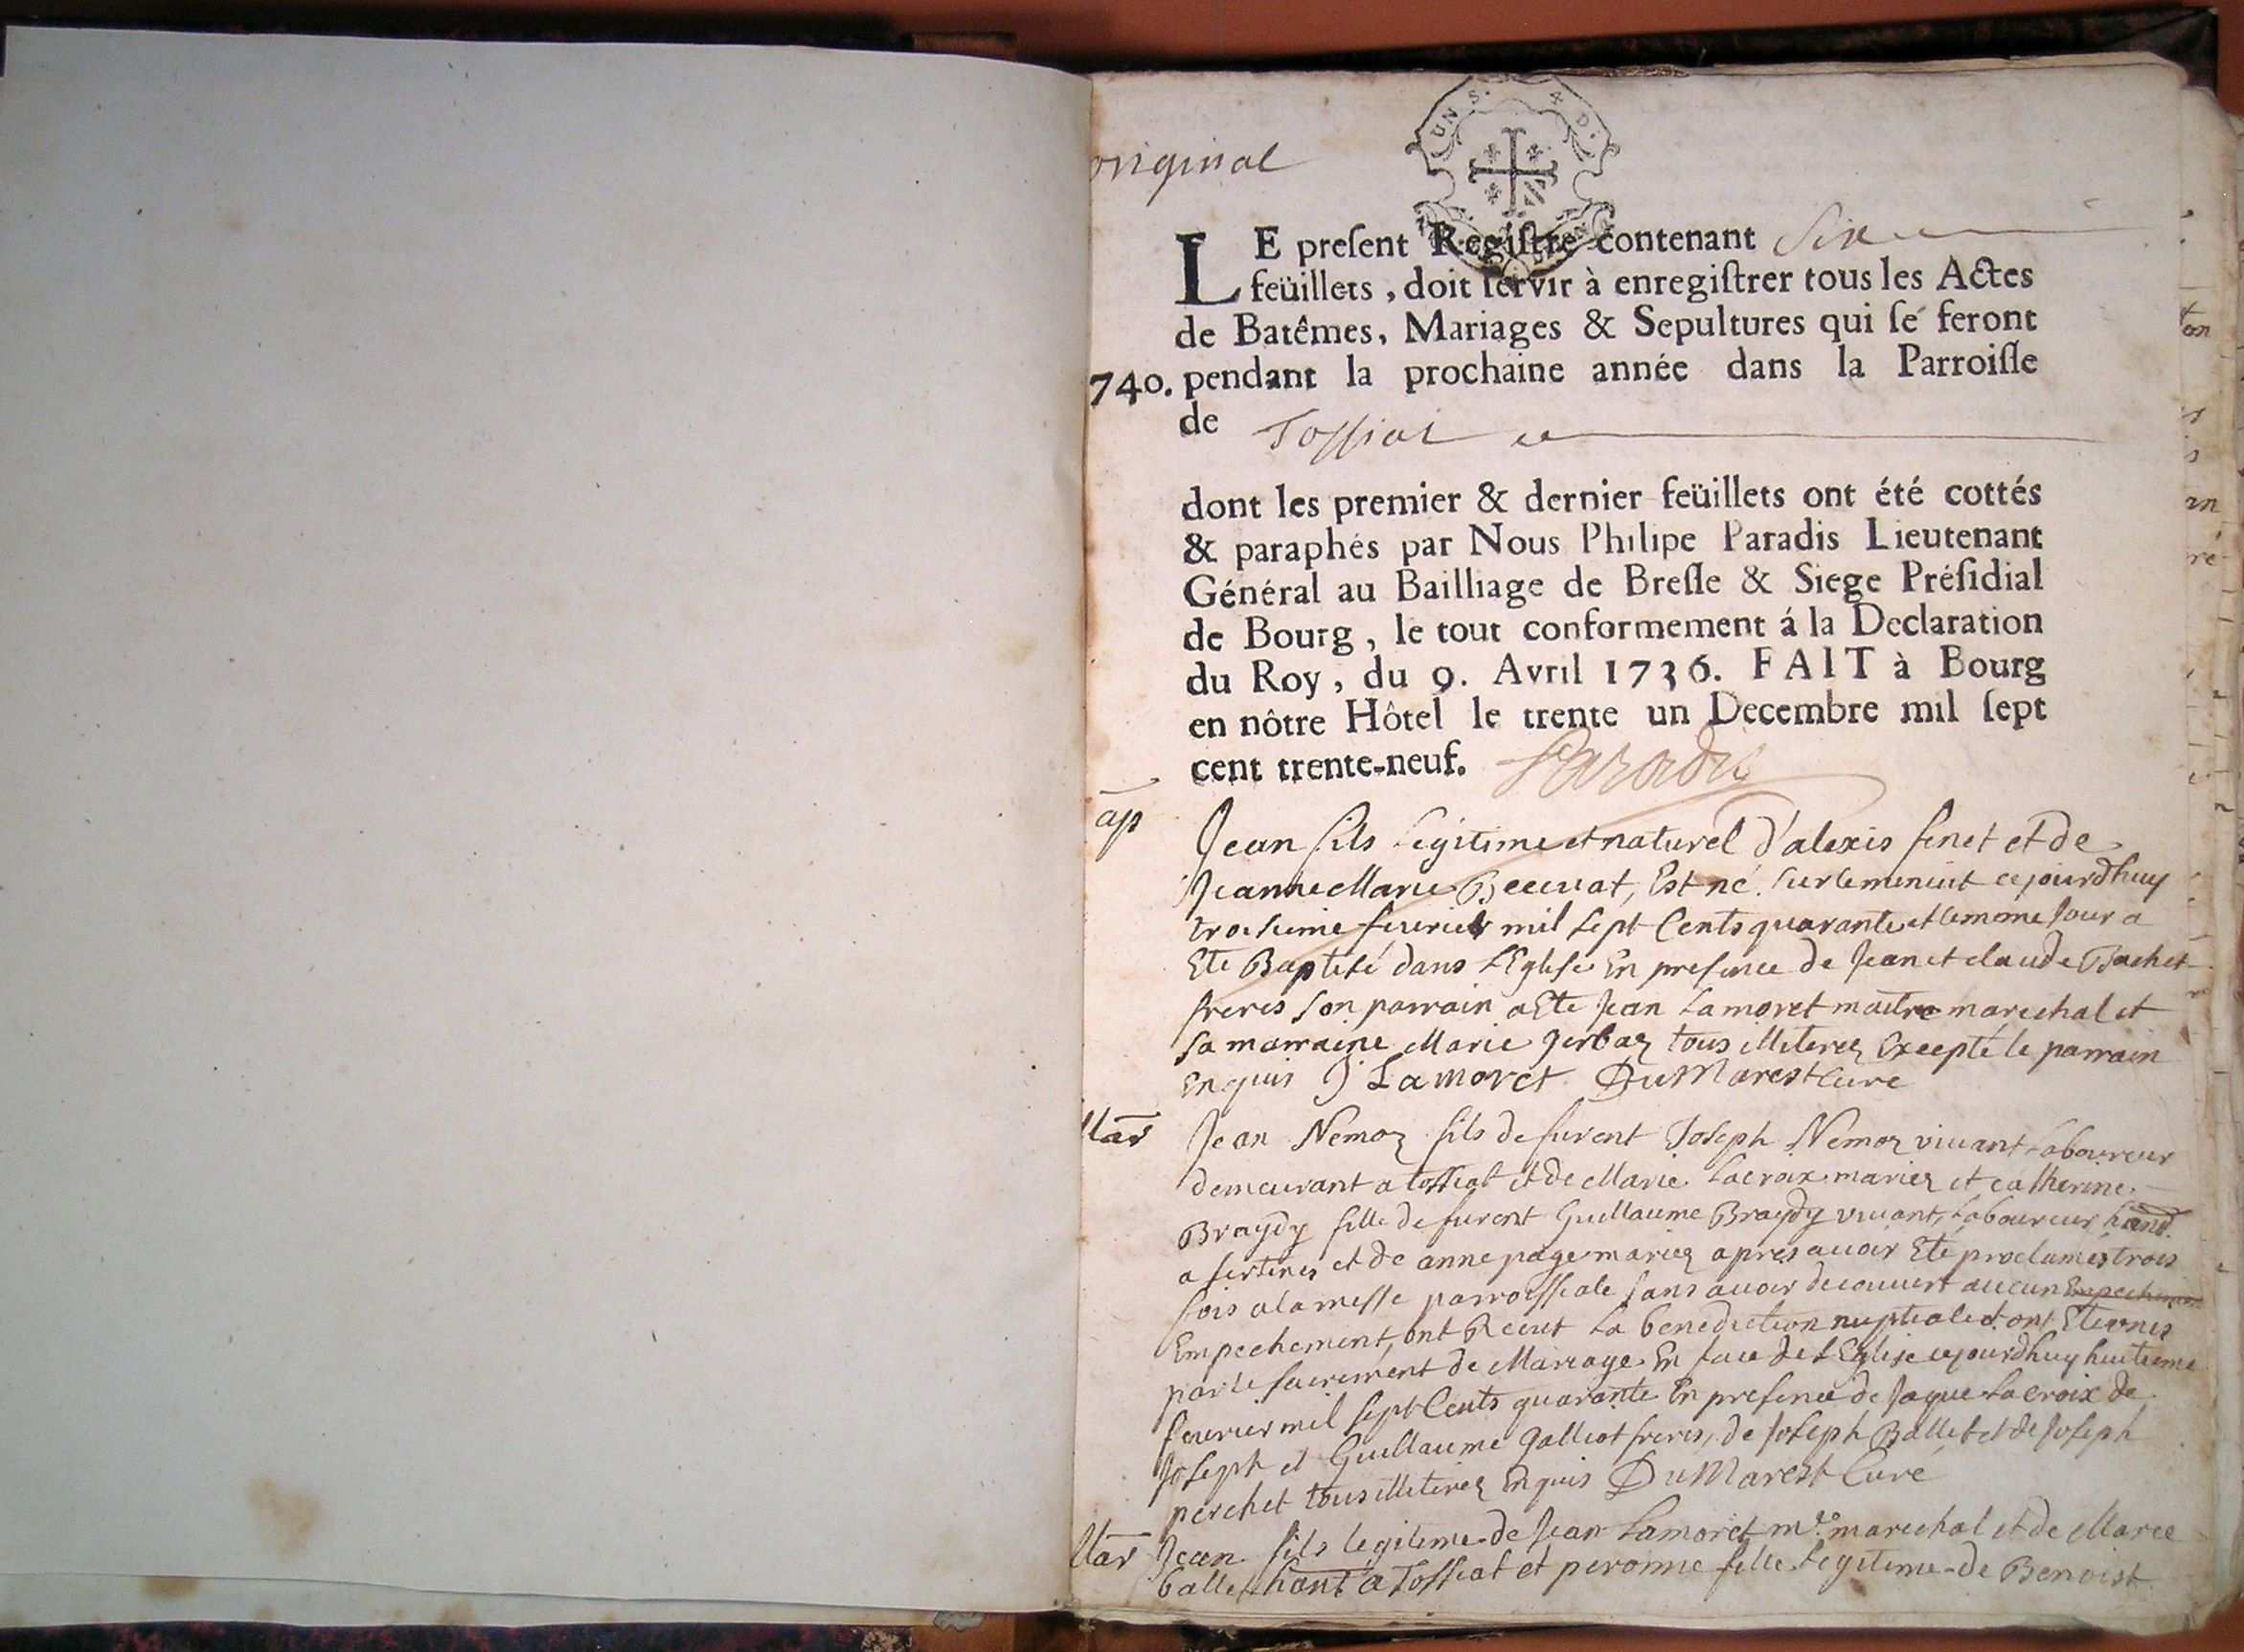 UN S. 4 D.
original
LE preſent Regiſtre contenant Six
feüillets, doit ſervir à enregiſtrer tous les Actes
de Batêmes, Mariages & Sepultures qui ſe feront
740. pendant la prochaine année dans la Parroiſſe
de Toſſiat
dont les premier & dernier feüillets ont été cottés
& paraphés par Nous Philipe Paradis Lieutenant
Général au Bailliage de Breſſe & Siege Préſidial
de Bourg, le tout conformement á la Declaration
du Roy, du 9. Avril 1736. FAIT à Bourg
en nôtre Hôtel le trente un Decembre mil ſept
cent trente-neuf. Paradis
ap
Jean fils legitime et naturel d'alexis finet et de
Jeanne Marie Est né sur le minuit cejourdhuy
troisieme feurier mil sept Cents quarante et le même Jour a
Eté Baptisé dans L'Eglise En presence de Jean et claude Bachet
freres son parrain a Ete Jean Lamoret maitre marechal et
sa marraine Marie gerbaz tous illiterez Excepté le parrain
Enquis J Lamoret DuMarest Curé
Mar Jean Nemoz fils de furent Joseph Nemoz viuant Laboureur
demeurant a tossiat et de Marie Lacroix mariez et catherine
Braydy fille de furent Guillaume Braydy viuant, Laboureur
a et de anne page mariez apres auoir Eté proclamés trois
fois a la messe parroissiale sans auoir decouuert aucun Empechement
Empechement, ont Receu La benediction nuptiale et ont Ete unis
par le sacrement de Mariage En face de L'Eglise cejourdhuy huitieme
feurier mil sept Cents quarante En presence de Jaque Lacroix de
Joseph et Guillaume Galliot freres, de Joseph Ballet et de Joseph
perchet tous illiterez Enquis DuMarest Curé
Mar Jean fils legitime de Jean Lamoret mre marechal et de Marie
balle hant a Tossiat et peronne fille Legitime de Benoist